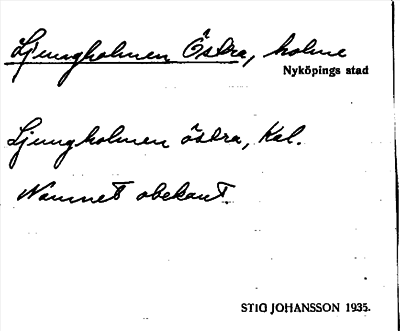 Ljungholmen Östra, holme
Nyköpings stad
Ljungholmen östra, Kal.
Namnet obekant.
STIG JOHANSSON 1935.